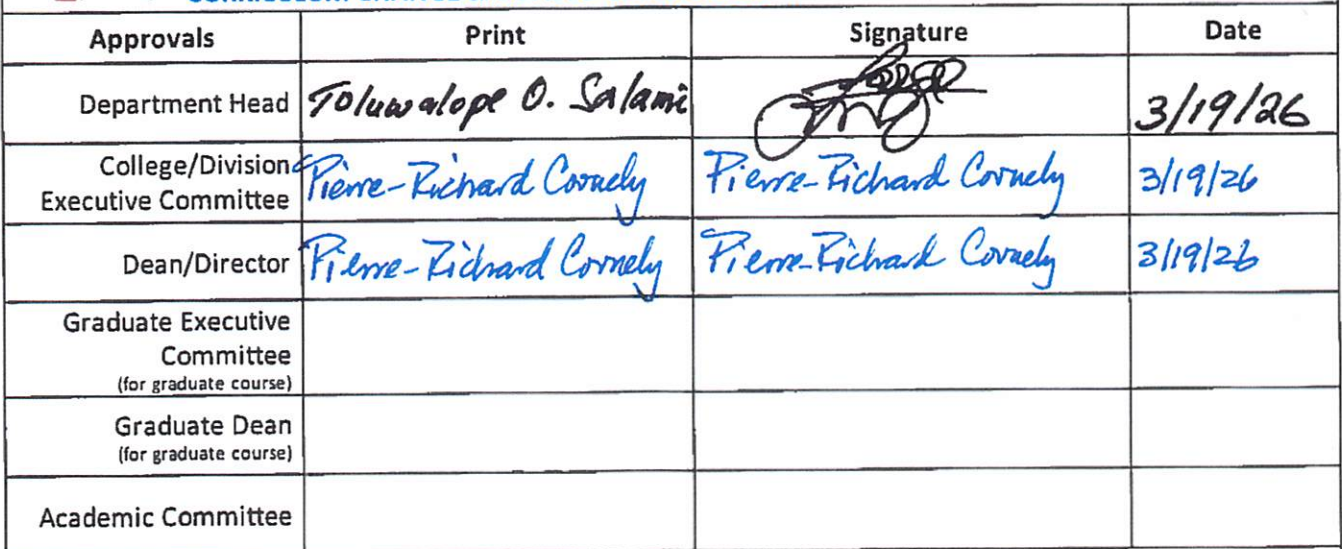 Approvals Print Signature Date
Department Head Toluwalope O. Salami 3/19/26
College/Division
Executive Committee Pierre-Richard Cornely Pierre-Richard Cornely 3/19/26
Dean/Director Pierre-Richard Cornely Pierre-Richard Cornely 3/19/26
Graduate Executive
Committee
(for graduate course)
Graduate Dean
(for graduate course)
Academic Committee